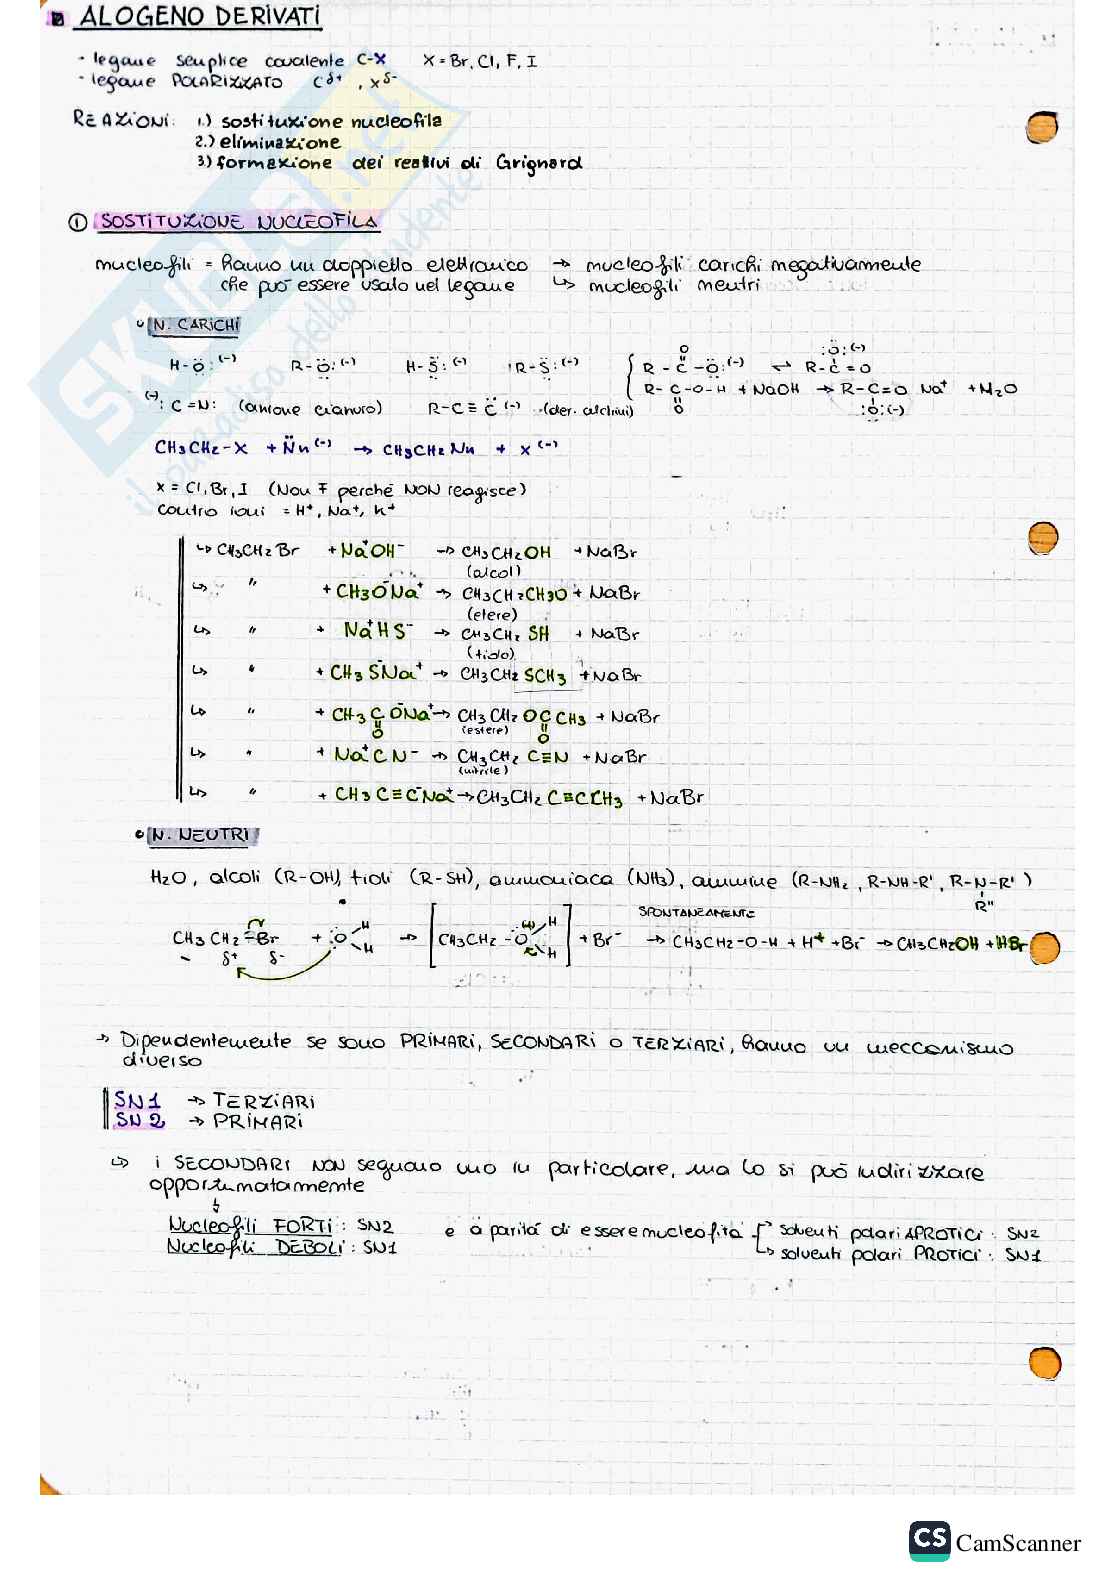 ALOGENO DERIVATI
· legame semplice covalente C-X X = Br, Cl, F, I
· legame POLARIZZATO Cδ+, Xδ-
REAZIONI: 1.) sostituzione nucleofila
2.) eliminazione
3) formazione dei reattivi di Grignard
① SOSTITUZIONE NUCLEOFILA
nucleofili = hanno un doppietto elettronico → nucleofili carichi negativamente
che può essere usato nel legame ↳ nucleofili neutri
• N. CARICHI
H-Ö:(-) R-Ö:(-) H-S̈:(-) R-S̈:(-) { R-C-Ö:(-) ⇌ R-C=O
O :Ö:(-)
R-C-O-H + NaOH → R-C=O Na+ + H2O
O :Ö:(-)
(-):C=N: (anione cianuro) R-C≡C̈(-) (der. alchini)
CH3CH2-X + N̈u(-) → CH3CH2Nu + X(-)
X = Cl, Br, I (Non F perché NON reagisce)
Contro ioni = H+, Na+, K+
↳ CH3CH2Br + Na+OH- → CH3CH2OH + NaBr
(alcol)
↳ " + CH3O-Na+ → CH3CH2CH3O + NaBr
(etere)
↳ " + Na+HS- → CH3CH2SH + NaBr
(tiolo)
↳ " + CH3S-Na+ → CH3CH2SCH3 + NaBr
↳ " + CH3CO-Na+ → CH3CH2OCCH3 + NaBr
O (estere) O
↳ " + Na+CN- → CH3CH2C≡N + NaBr
(nitrile)
↳ " + CH3C≡C-Na+ → CH3CH2C≡CCH3 + NaBr
• N. NEUTRI
H2O, alcoli (R-OH), tioli (R-SH), ammoniaca (NH3), ammine (R-NH2, R-NH-R', R-N-R')
R"
SPONTANEAMENTE
CH3CH2-Br + :O H H → [CH3CH2-O (+) H H] + Br- → CH3CH2-O-H + H+ + Br- → CH3CH2OH + HBr
δ+ δ-
→ Dipendentemente se sono PRIMARI, SECONDARI O TERZIARI, hanno un meccanismo
diverso
SN1 → TERZIARI
SN2 → PRIMARI
↳ i SECONDARI NON seguono uno in particolare, ma lo si può indirizzare
opportunatamente
↓
Nucleofili FORTI: SN2 e a parità di essere nucleofilo → solventi polari APROTICI: SN2
Nucleofili DEBOLI: SN1 ↳ solventi polari PROTICI: SN1
SKUOLA.net
il paradiso dello studente
CS CamScanner